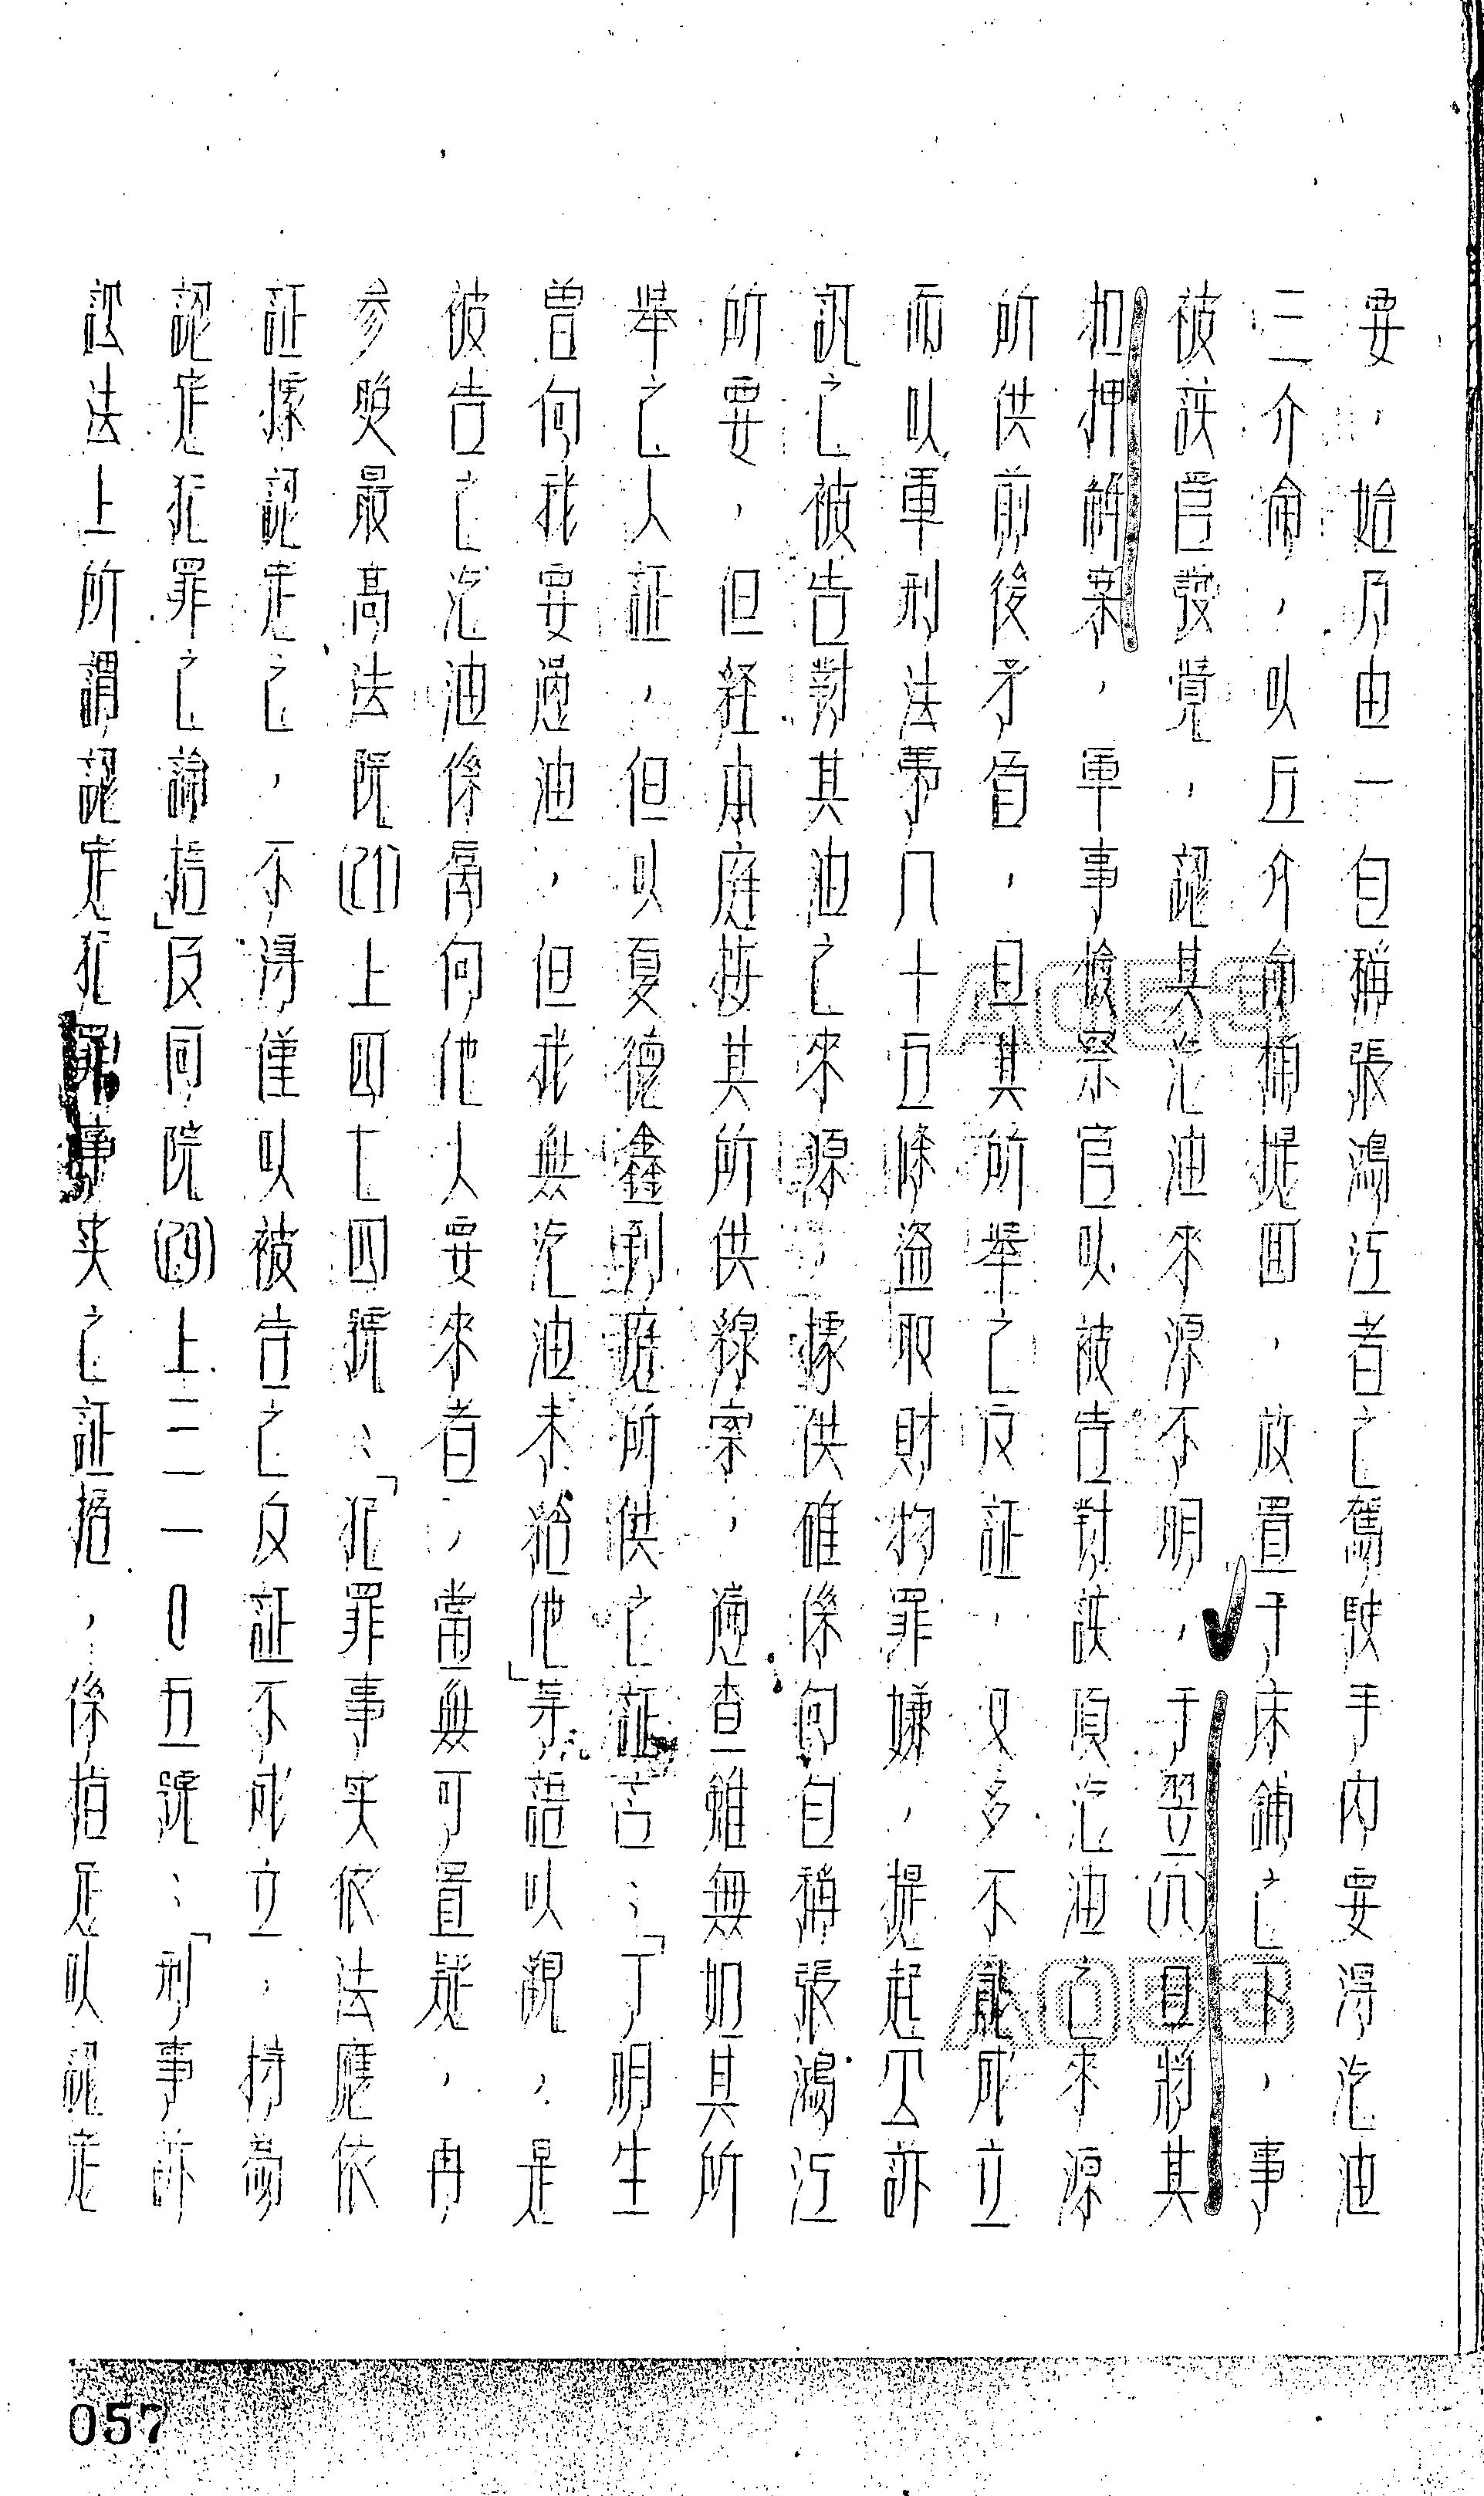 要，始乃由一自稱張鴻江者之駕駛手內要得汽油
三介侖，以五介侖桶提回，放置于床鋪之下，事
被該官發覺，認其汽油來源不明，于翌(八)日將其
扣押解案，軍事檢察官以被告對該項汽油之來源
所供前後矛盾，且其所舉之反証，又多不能成立
而以軍刑法第八十五條盜取財物罪嫌，提起公訴
訊之被告對其油之來源，據供確係向自稱張鴻江
所要，但経本庭按其所供線索，遍查雖無如其所
舉之人証，但以夏德鑫到庭所供之証言：「丁明生
曾向我要過油，但我無汽油未給他」等語以觀，是
被告之汽油係專向他人要來者，當無可置疑，再
参照最高法院(21)上四七四號：「犯罪事实依法應依
証據認定之，不得僅以被告之反証不成立，持為
認定犯罪之論据」及同院(29)上三一〇五號：「刑事訴
訟法上所謂認定犯罪事实之証据，係指足以認定
057
A053
A053